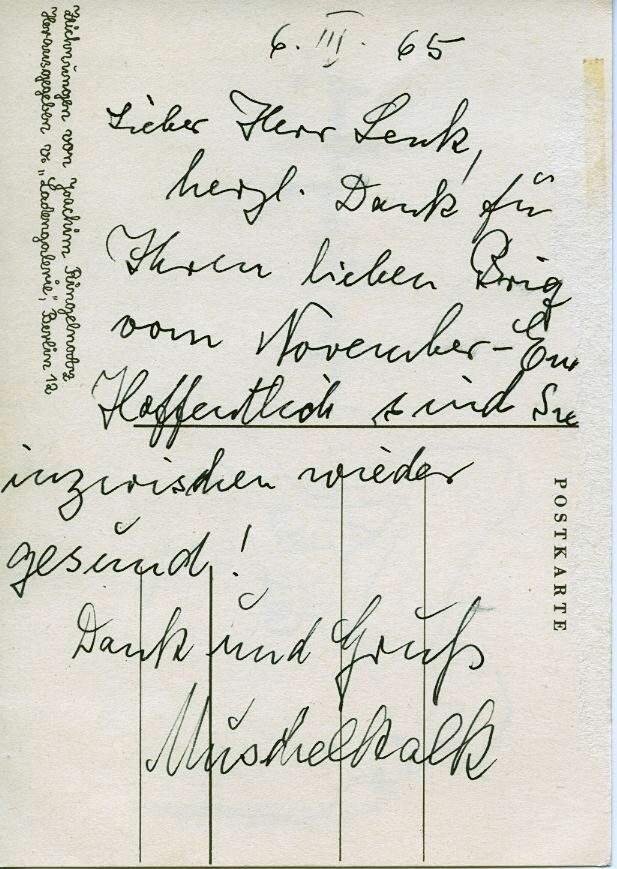 6. III. 65
Lieber Herr Lenk,
herzl. Dank für
Ihren lieben Brief
vom November-
Hoffentlich sind Sie
inzwischen wieder
gesund!
Dank und Gruß
Muschelkalk
Zeichnungen von Joachim Ringelnatz
Herausgegeben v. „Ladengalerie", Berlin 12
POSTKARTE